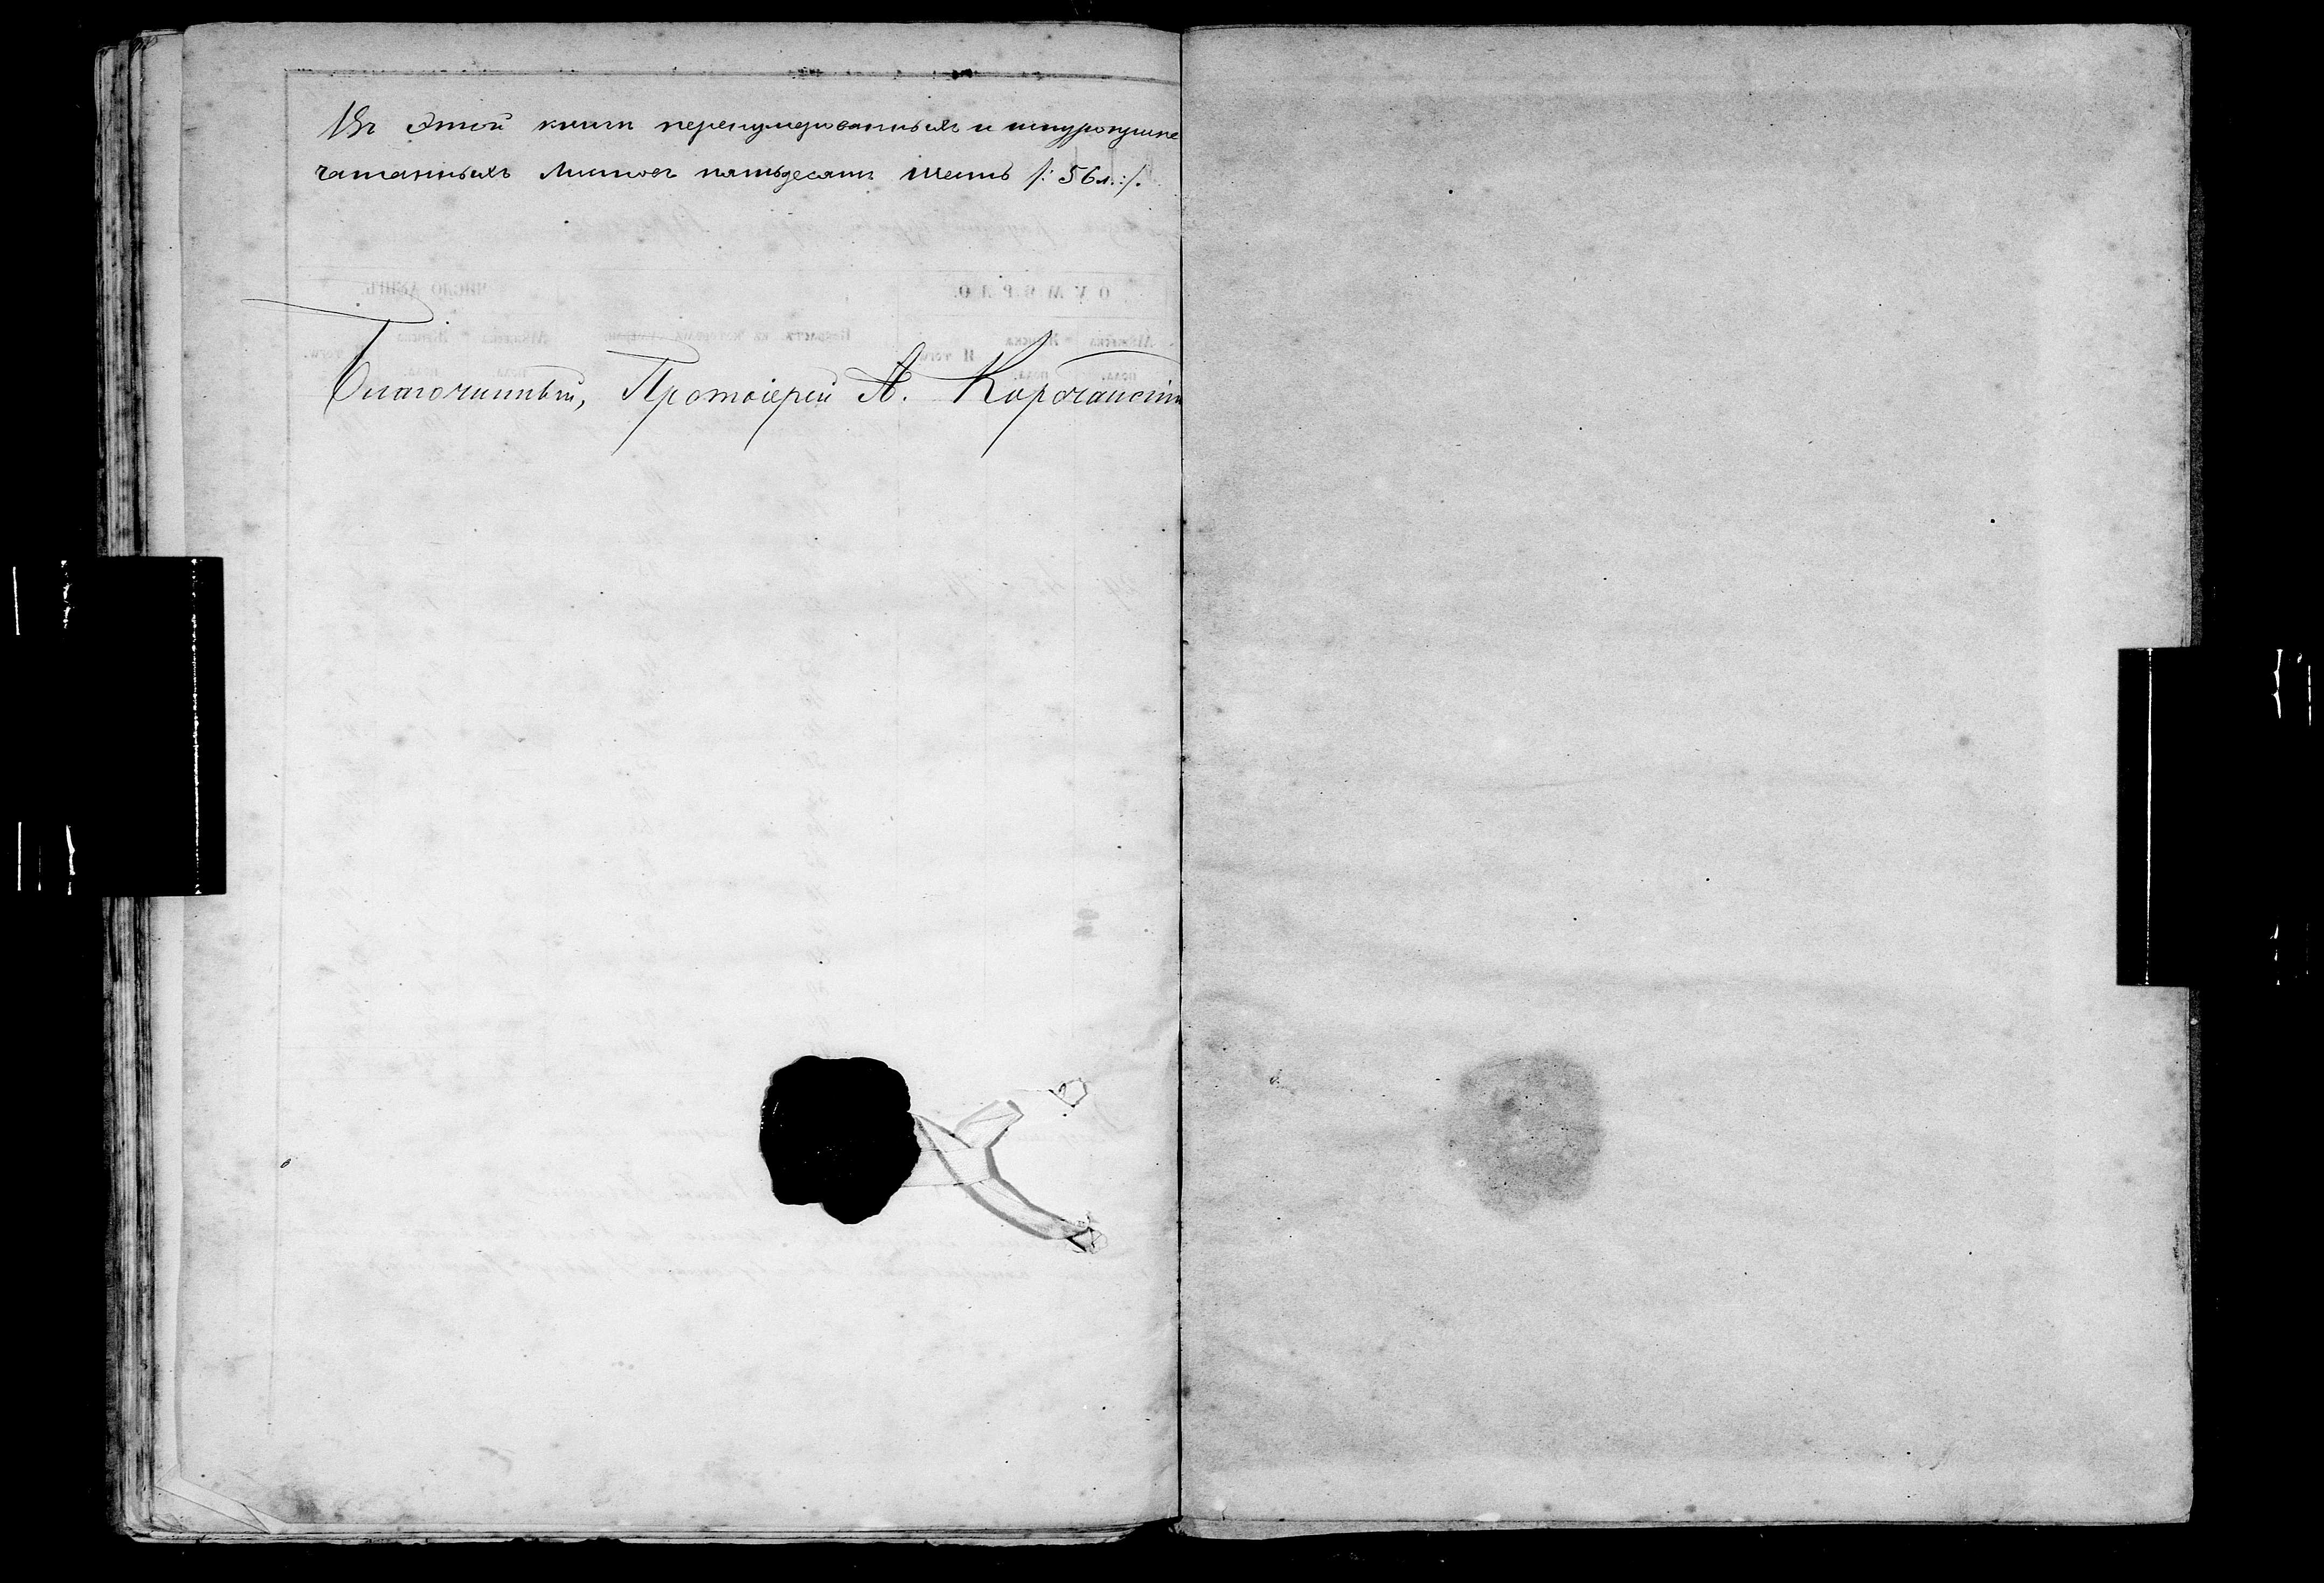 Въ этой книги перенумерованныхъ и шнурозапе
чатанныхъ листовъ пятьдесятъ шесть /: 56 л. :/.
Благочинный, Протоіерей А. Корочанскій